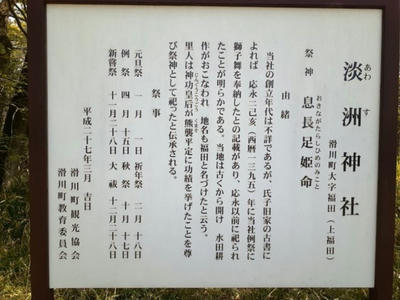 淡洲神社
あわ す
滑川町大字福田(上福田)
祭神 息長足姫命
おきながたらしひめのみこと
由緒
当社の創立年代は不詳であるが、氏子旧家の古書に
よれば 応永二己亥(西暦一三九五)年に当社例祭に
獅子舞を奉納したとの記載があり、応永以前に祀られ
たことが明らかである。当地は古くから開け 水田耕
作がおこなわれ 地名も福田と名づけたと云う。
里人は神功皇后が熊襲平定に功績を挙げたことを尊
び祭神として祀ったと伝承される。
祭事
元旦祭 一月 一日 祈年祭 二月 十八日
例祭 四月 十五日 秋祭 十月 十七日
新嘗祭 十一月二十八日 大祓 十二月二十八日
平成二十七年三月 吉日
滑川町観光協会
滑川町教育委員会